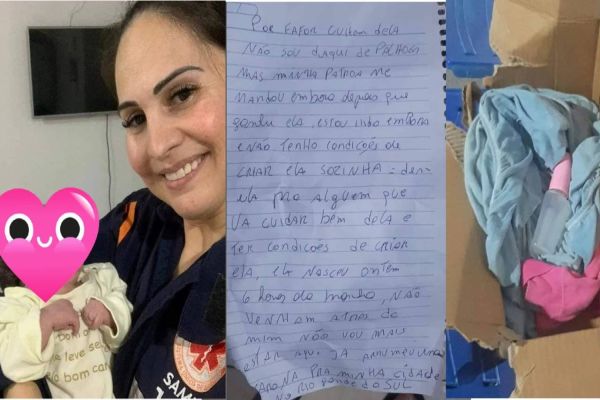 POR FAFOR CUIDEM DELA
NÃO SOU DAQUI DE PALHOÇA
MAS MINHA PATROA ME
MANDOU EMBORA depois que
ganhei ela, estou indo EMBORA
E NÃO TENHO CONDIÇÕES de
CRIAR ELA SOZINHA
ela PRO AlGUEM QUE
VA CUIDAR BEM DELA E
TER CONDICOES DE CRIAR
ELA, ELA NASCEU ONTEM
6 horas da manha, NÃO
VENHAM ATRAS DE
MIM NÃO VOU MAIS
ESTAR AQUI. JA ARRUMEI UMA
CARONA PRA MINHA CIDADE
NO RIO GRANDE DO SUL
bom
leve
bom
SAMU